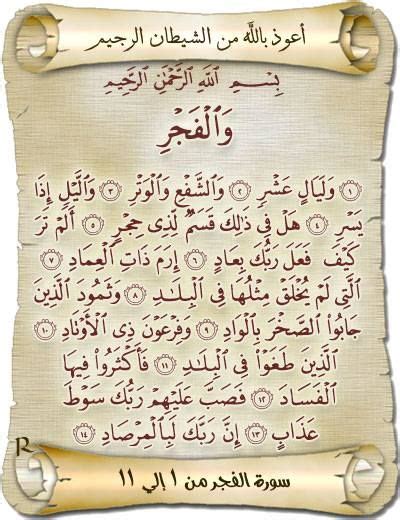 أعوذ بالله من الشيطان الرجيم
بِسْمِ ٱللَّهِ ٱلرَّحْمَٰنِ ٱلرَّحِيمِ
وَٱلْفَجْرِ
١ وَلَيَالٍ عَشْرٍ ٢ وَٱلشَّفْعِ وَٱلْوَتْرِ ٣ وَٱلَّيْلِ إِذَا
يَسْرِ ٤ هَلْ فِى ذَٰلِكَ قَسَمٌ لِّذِى حِجْرٍ ٥ أَلَمْ تَرَ
كَيْفَ فَعَلَ رَبُّكَ بِعَادٍ ٦ إِرَمَ ذَاتِ ٱلْعِمَادِ ٧
ٱلَّتِى لَمْ يُخْلَقْ مِثْلُهَا فِى ٱلْبِلَٰدِ ٨ وَثَمُودَ ٱلَّذِينَ
جَابُوا۟ ٱلصَّخْرَ بِٱلْوَادِ ٩ وَفِرْعَوْنَ ذِى ٱلْأَوْتَادِ ١٠
ٱلَّذِينَ طَغَوْا۟ فِى ٱلْبِلَٰدِ ١١ فَأَكْثَرُوا۟ فِيهَا
ٱلْفَسَادَ ١٢ فَصَبَّ عَلَيْهِمْ رَبُّكَ سَوْطَ
عَذَابٍ ١٣ إِنَّ رَبَّكَ لَبِٱلْمِرْصَادِ ١٤
R
سورة الفجر من ١ إلي ١١